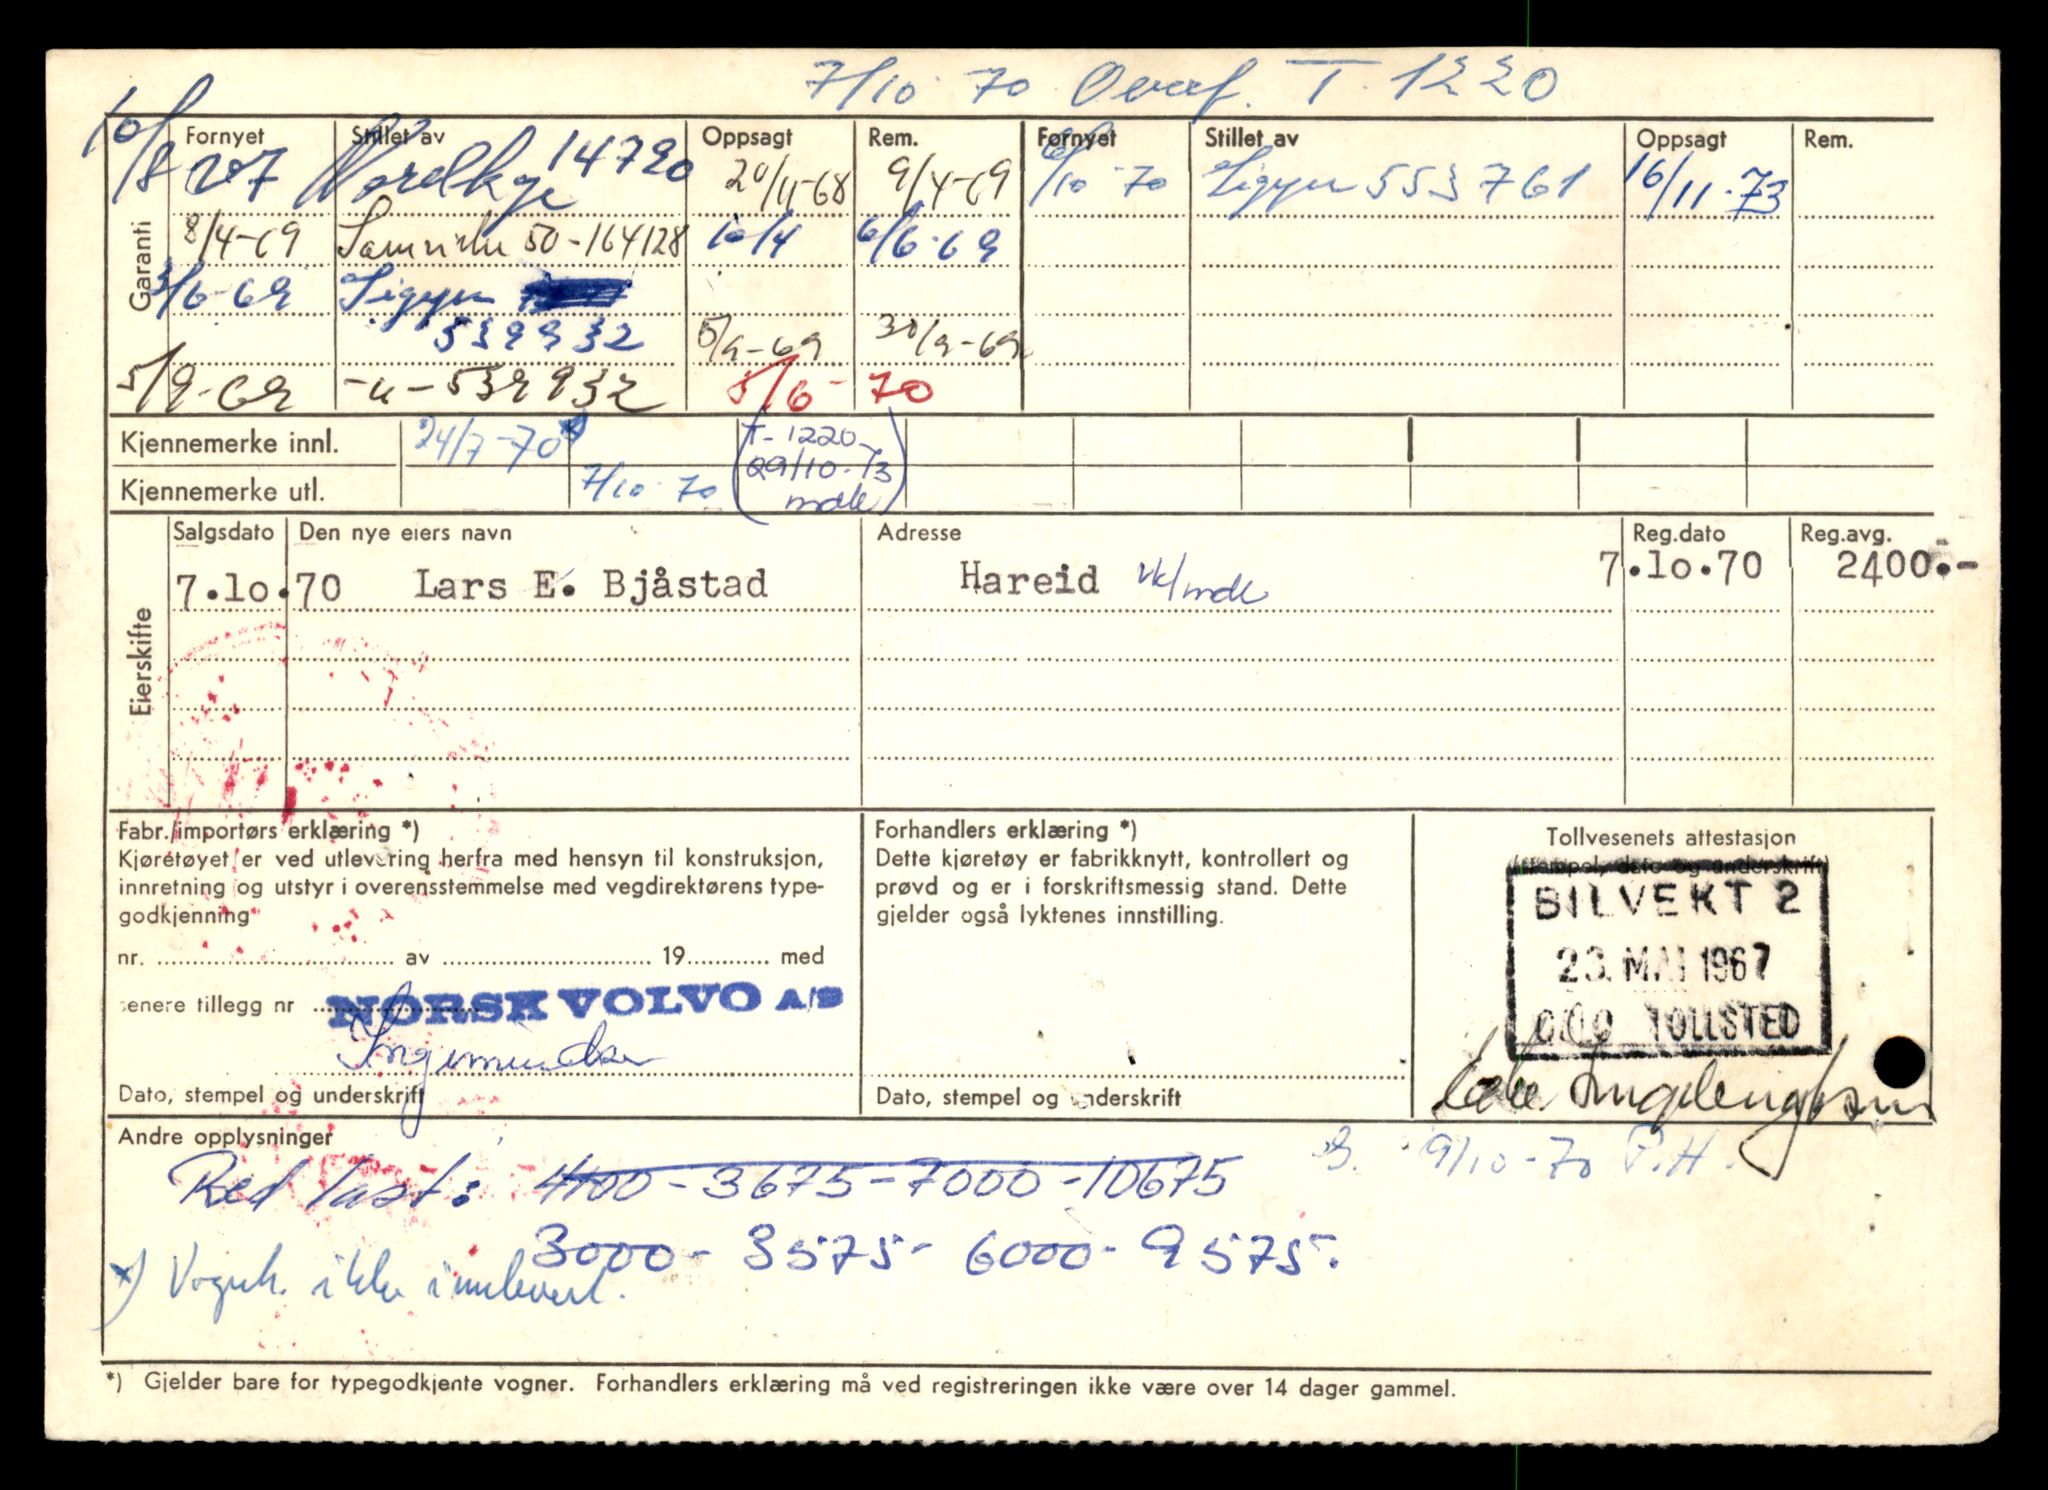 7/10-70 Overf. T. 1220
Fornyet Stillet av Oppsagt Rem. Fornyet Stillet av Oppsagt Rem.
Garanti
Nordkyn 14720 20/11-68 9/4-69 6/10-70 Sigyn 553761 16/11-73
8/4-69 Samvirke 50-164128 10/4 6/6-69
3/6-69 Sigyn
539932 5/9-69 30/9-69
5/9-69 -u- 539932 5/6-70
Kjennemerke innl. 24/7-70 *) (T-1220
29/10-73
Kjennemerke utl. 7/10-70 mdl)
Eierskifte
Salgsdato Den nye eiers navn Adresse Reg.dato Reg.avg.
7.10.70 Lars E. Bjåstad Hareid vk/mdl 7.10.70 2400.-
Fabr./importørs erklæring *)
Kjøretøyet er ved utlevering herfra med hensyn til konstruksjon,
innretning og utstyr i overensstemmelse med vegdirektørens type-
godkjenning
nr. av 19 med
senere tillegg nr
NORSK VOLVO A/S
Ingemundsen
Dato, stempel og underskrift
Forhandlers erklæring *)
Dette kjøretøy er fabrikknytt, kontrollert og
prøvd og er i forskriftsmessig stand. Dette
gjelder også lyktenes innstilling.
Dato, stempel og underskrift
Tollvesenets attestasjon
(stempel, dato og underskrift)
BILVEKT 2
23. MAI 1967
OSLO TOLLSTED
Andre opplysninger
9/10-70 P.H.
Red last: 4100-3675-7000-10675
3000-3575-6000-9575.
*) Vognk. ikke innlevert.
*) Gjelder bare for typegodkjente vogner. Forhandlers erklæring må ved registreringen ikke være over 14 dager gammel.